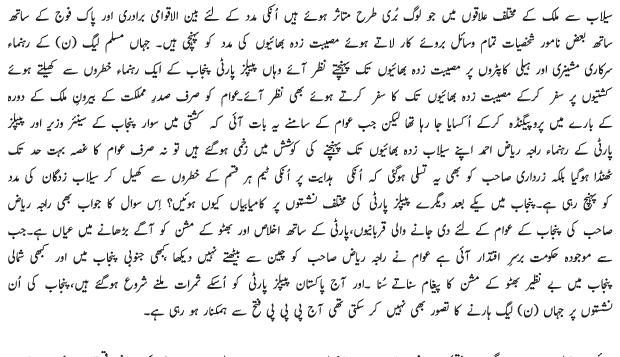 سیلاب سے ملک کے مختلف علاقوں میں جو لوگ بُری طرح متاثر ہوئے ہیں اُنکی مدد کے لئے بین الاقوامی برادری اور پاک فوج کے ساتھ
ساتھ بعض نامور شخصیات تمام وسائل بروئے کار لاتے ہوئے مصیبت زدہ بھائیوں کی مدد کو پہنچی ہیں۔ جہاں مسلم لیگ (ن) کے رہنماء
سرکاری مشینری اور ہیلی کاپٹروں پر مصیبت زدہ بھائیوں تک پہنچتے نظر آئے وہاں پیپلز پارٹی پنجاب کے ایک رہنماء خطروں سے کھیلتے ہوئے
کشتیوں پر سفر کرکے مصیبت زدہ بھائیوں تک کا سفر کرتے ہوئے بھی نظر آئے۔عوام کو صرف صدرِ مملکت کے بیرونِ ملک کے دورہ
کے بارے میں پروپیگنڈہ کرکے اُکسایا جا رہا تھا لیکن جب عوام کے سامنے یہ بات آئی کہ کشتی میں سوار پنجاب کے سینئر وزیر اور پیپلز
پارٹی کے رہنماء راجہ ریاض احمد اپنے سیلاب زدہ بھائیوں تک پہنچنے کی کوشش میں زخمی ہوگئے ہیں تو نہ صرف عوام کا غصہ بہت حد تک
ٹھنڈا ہوگیا بلکہ زرداری صاحب کو بھی یہ تسلی ہوگئی کہ اُنکی ہدایت پر اُنکی ٹیم ہر قسم کے خطروں سے کھیل کر سیلاب زدگان کی مدد
کو پہنچ رہی ہے۔پنجاب میں یکے بعد دیگرے پیپلز پارٹی کی مختلف نشستوں پر کامیابیاں کیوں ہوئیں؟ اِس سوال کا جواب بھی راجہ ریاض
صاحب کی پنجاب کے عوام کے لئے دی جانے والی قربانیوں،پارٹی کے ساتھ اخلاص اور بھٹو کے مشن کو آگے بڑھانے میں عیاں ہے۔جب
سے موجودہ حکومت برسرِ اقتدار آئی ہے عوام نے راجہ ریاض صاحب کو چین سے بیٹھتے نہیں دیکھا،کبھی جنوبی پنجاب میں اور کبھی شمالی
پنجاب میں بے نظیر بھٹو کے مشن کا پیغام سناتے سُنا ۔اور آج پاکستان پیپلز پارٹی کو اُسکے ثمرات ملنے شروع ہوگئے ہیں،پنجاب کی اُن
نشستوں پر جہاں (ن) لیگ ہارنے کا تصور بھی نہیں کر سکتی تھی آج پی پی پی فتح سے ہمکنار ہو رہی ہے۔